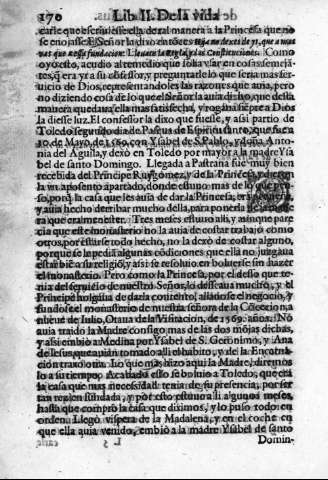 170 Lib. II. De la vida
carle que escriuiesse ella, de tal manera a la Princesa que no
se enojasse. El Señor la dixo entõces: Hija no dexes de yr, que a mas
que a essa fundacion: Lleuate la Regla, y las Constituciones. Como
oyò esto, acudio al remedio que solia vsar en cosas semejã-
tes, q̃ era yr a su cõfessor, y preguntarle lo que seria mas ser-
uicio de Dios, representandoles las razones que auia, pero
no diziendo cosa de lo que el Señor la auia dicho, que desta
manera quedaua ella mas satisfecha, y rogaua siẽpre a Dios
la diesse luz. El confessor la dixo que fuesse, y assi partio de
Toledo segundo dia de Pascua de Espiritu santo, que fue a
30. de Mayo, de 1569. con Ysabel de S. Pablo, y doña Anto-
nia del Aguila, y dexò en Toledo por mayor a la madre Ysa
bel de santo Domingo. Llegada a Pastrana fue muy bien
recebida del Principe Ruygomez, y de la Princesa,
un aposento apartado, donde estuuo mas de lo
so, porq̃ la casa que les auia de dar la Princesa, era
y auia hecho derribar mucho della, para ponerla
ra que eran menester. Tres meses estuuo alli, y aũque pare
cia que este monasterio no la auia de costar trabajo como
otros, por estarse todo hecho, no la dexò de costar alguno,
porque se la pediã algunas cõdiciones que ella no juzgaua
estar biẽ a su religiõ, y assi se resoluio en boluerse sin hazer
el monasterio. Pero como la Princesa, por el desseo que te-
nia del seruicio de nuestro Señor, lo desseaua mucho, y el
Principe holgaua de darla contento, allanose el negocio, y
fundose el monasterio de nuestra señora de la Cõcecion a
nueue de Iulio, Otaua de la Visitacion, de 1569. años. No
auia traido la Madre consigo mas de las dos mõjas dichas,
y assi embiò a Medina por Ysabel de S. Geronimo, y Ana
de Iesus, que auian tomado alli el habito, y de la Encarna-
ciõn traxo otra. Lo que mas hizo aqui la Madre, diremos
lo a su tiempo. Acabado esto se boluio a Toledo, que era
la casa que mas necessidad tenia de su presencia, por ser
tan rezien fundada, y por esto estuuo alli algunos meses,
hasta que comprò la casa que diximos, y lo puso todo en
orden. Llegò vispera de la Madalena, y en el coche en
que ella auia venido, embiò a la madre Ysabel de santo
Domin-